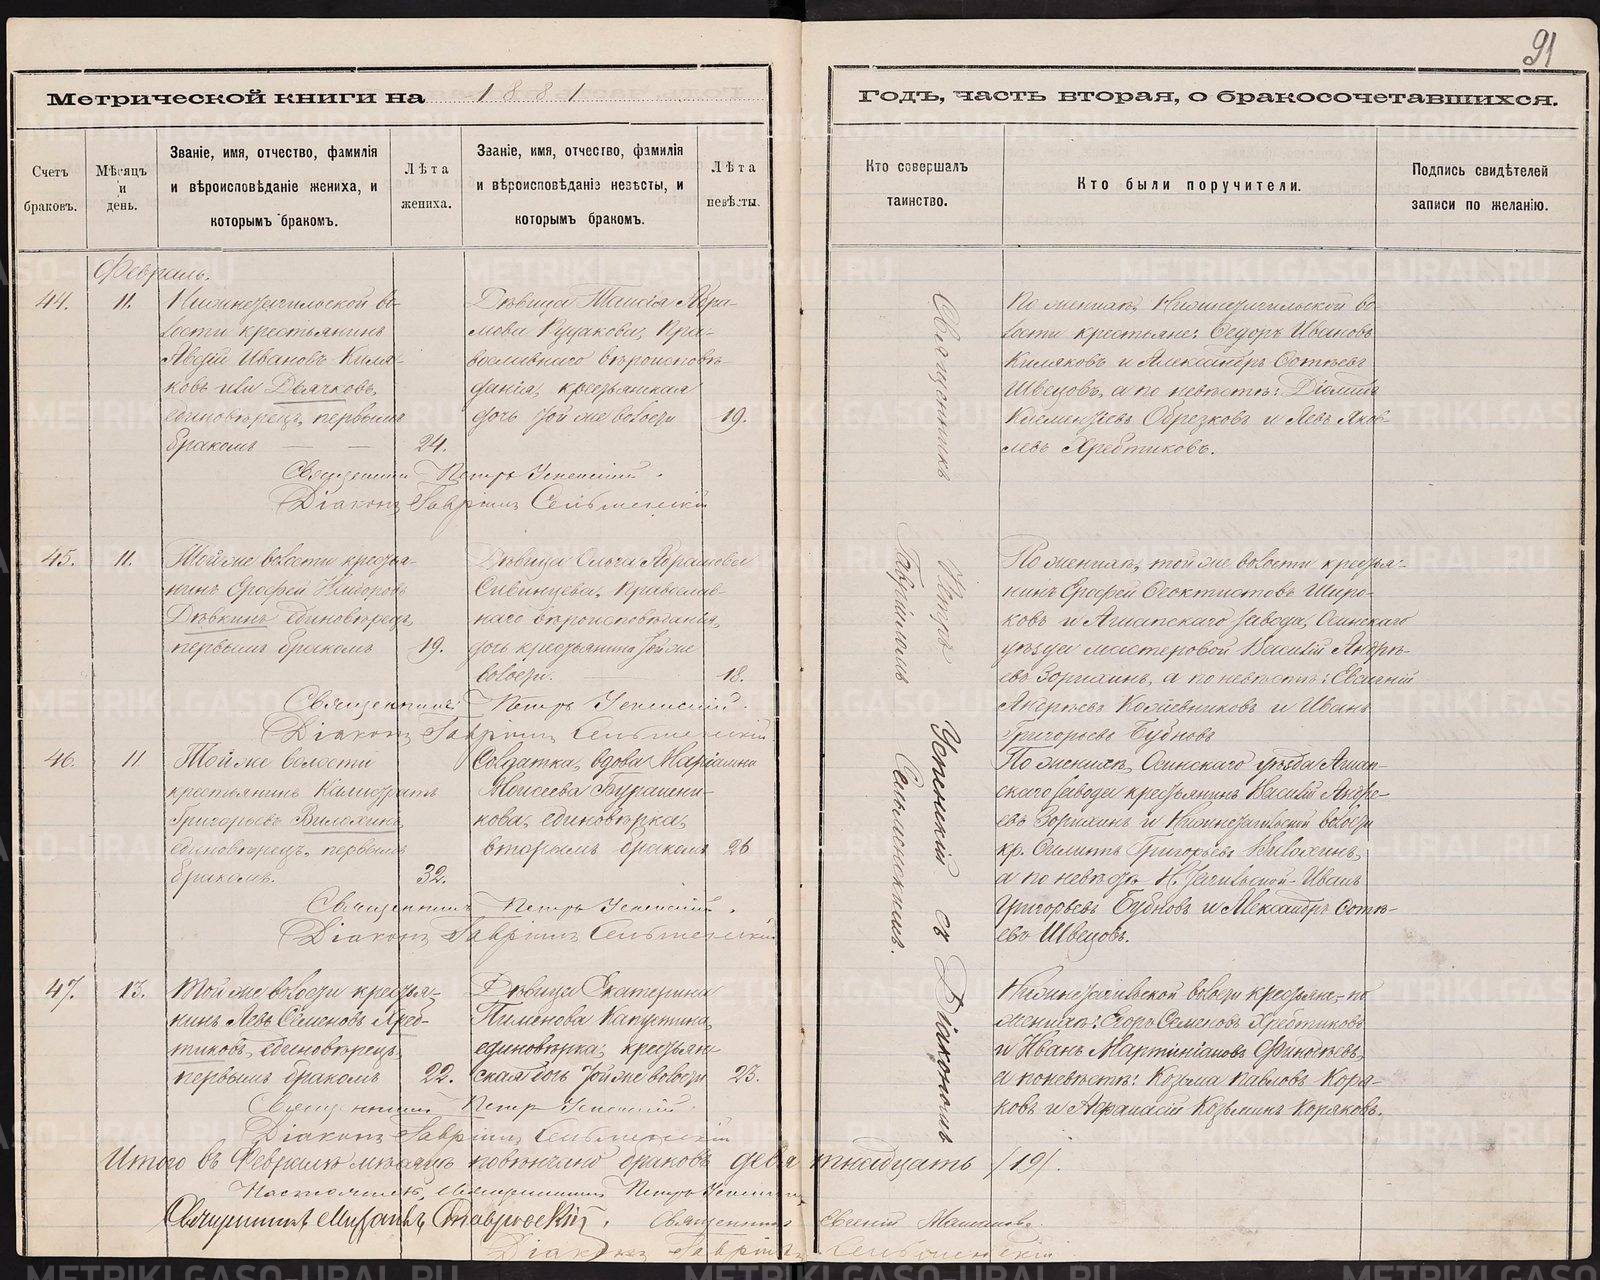 91
Метрической книги на 1881
годъ, часть вторая, о бракосочетавшихся.
Счетъ браковъ.
Мѣсяцъ и день.
Званіе, имя, отчество, фамилія
и вѣроисповѣданіе жениха, и
которымъ бракомъ.
Лѣта жениха.
Званіе, имя, отчество, фамилія
и вѣроисповѣданіе невѣсты, и
которымъ бракомъ.
Лѣта невѣсты.
Кто совершалъ
таинство.
Кто были поручители.
Подпись свидѣтелей
записи по желанію.
Февраль.
44.
11.
Нижнетагильской во-
лости крестьянинъ
Авдій Ивановъ Киля-
ковъ или Дьячковъ,
единовѣрецъ, первымъ
бракомъ
24.
Дѣвица Таисія Абра-
мова православнаго вѣроисповѣ-
данія, крестьянская
дочь той же волости
19.
По женихѣ, Нижнетагильской во-
лости крестьяне: Федоръ Ивановъ
Киляковъ и Александръ Фотіевъ
Швецовъ, а по невѣстѣ:
Климентьевъ Обрезковъ и Левъ Яков-
левъ Хребтиковъ.
Священникъ Петръ Успенскій.
Діаконъ Гавріилъ Сельменскій
45.
11.
Той же волости кресть-
янинъ Ерофей
Дѣвкинъ единовѣрецъ,
первымъ бракомъ
19.
Дѣвица Ольга Абрамова
Сивинцева, православ-
наго вѣроисповѣданія,
дочь крестьянина той же
волости.
18.
По женихѣ, той же волости крестья-
нинъ Ерофей Феоктистовъ Широ-
ковъ и завода, Осинскаго
уѣзда мастеровой Василій Андрѣ-
евъ Зорихинъ, а по невѣстѣ: Евгеній
Андреевъ Кожевниковъ и Иванъ
Григорьевъ Бубновъ
Священникъ Петръ Успенскій.
Діаконъ Гавріилъ Сельменскій
46.
11
Той же волости
крестьянинъ Калистратъ
Григорьевъ Вилохинъ,
единовѣрецъ, первымъ
бракомъ.
32.
Солдатка, вдова Маріамна
Моисеева Бурашни-
кова, единовѣрка,
вторымъ бракомъ
26
По женихѣ, Осинскаго уѣзда
скаго завода крестьянинъ Василій Андре-
евъ Зорихинъ и Нижнетагильской волости
кр. Филиппъ Григорьевъ Вилохинъ,
а по невѣстѣ Н. Тагильской - Иванъ
Григорьевъ Бубновъ и Александръ Фоті-
евъ Швецовъ.
Священникъ Петръ Успенскій.
Діаконъ Гавріилъ Сельменскій
47.
13.
Той же волости крестья-
нинъ Левъ Семеновъ Хреб-
тиковъ, единовѣрецъ,
первымъ бракомъ
22.
Дѣвица Екатерина
Пименова Капустина,
единовѣрка, крестьян-
ская дочь той же волости
23.
Нижнетагильской волости крестьяне, по
женихѣ: Егоръ Семеновъ Хребтиковъ
и Иванъ Мартиніановъ
а по невѣстѣ: Козьма Павловъ Коря-
ковъ и Афанасій Козьминъ Коряковъ.
Священникъ Петръ Успенскій.
Діаконъ Гавріилъ Сельменскій
Священникъ Петръ Успенскій съ Діакономъ
Гавріиломъ Сельменскимъ.
Итого въ Февралѣ мѣсяцѣ повѣнчано браковъ девятнадцать /19/.
Настоятель, Священникъ Петръ Успенскій
Священникъ Михаилъ Ставровскій. Священникъ Евгеній
Діаконъ Гавріилъ Сельменскій
METRIKI.GASO-URAL.RU